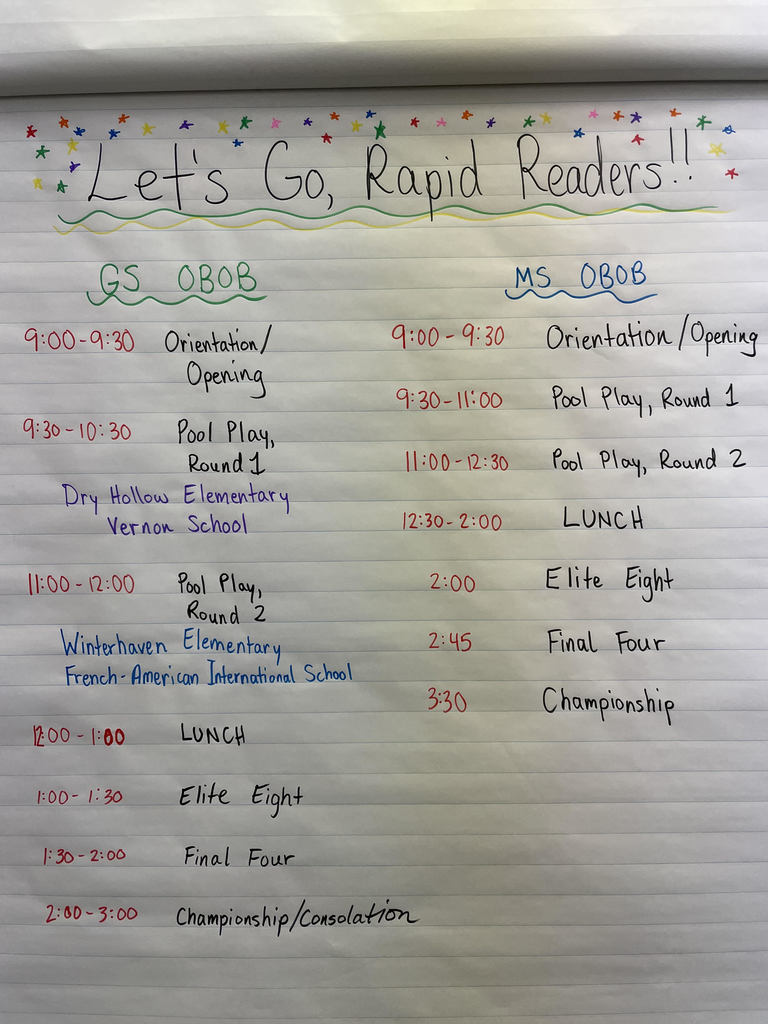 Let's Go, Rapid Readers!!
GS OBOB
9:00-9:30 Orientation/
Opening
9:30-10:30 Pool Play,
Round 1
Dry Hollow Elementary
Vernon School
11:00-12:00 Pool Play,
Round 2
Winterhaven Elementary
French-American International School
12:00-1:00 LUNCH
1:00-1:30 Elite Eight
1:30-2:00 Final Four
2:00-3:00 Championship/Consolation
MS OBOB
9:00-9:30 Orientation/Opening
9:30-11:00 Pool Play, Round 1
11:00-12:30 Pool Play, Round 2
12:30-2:00 LUNCH
2:00 Elite Eight
2:45 Final Four
3:30 Championship